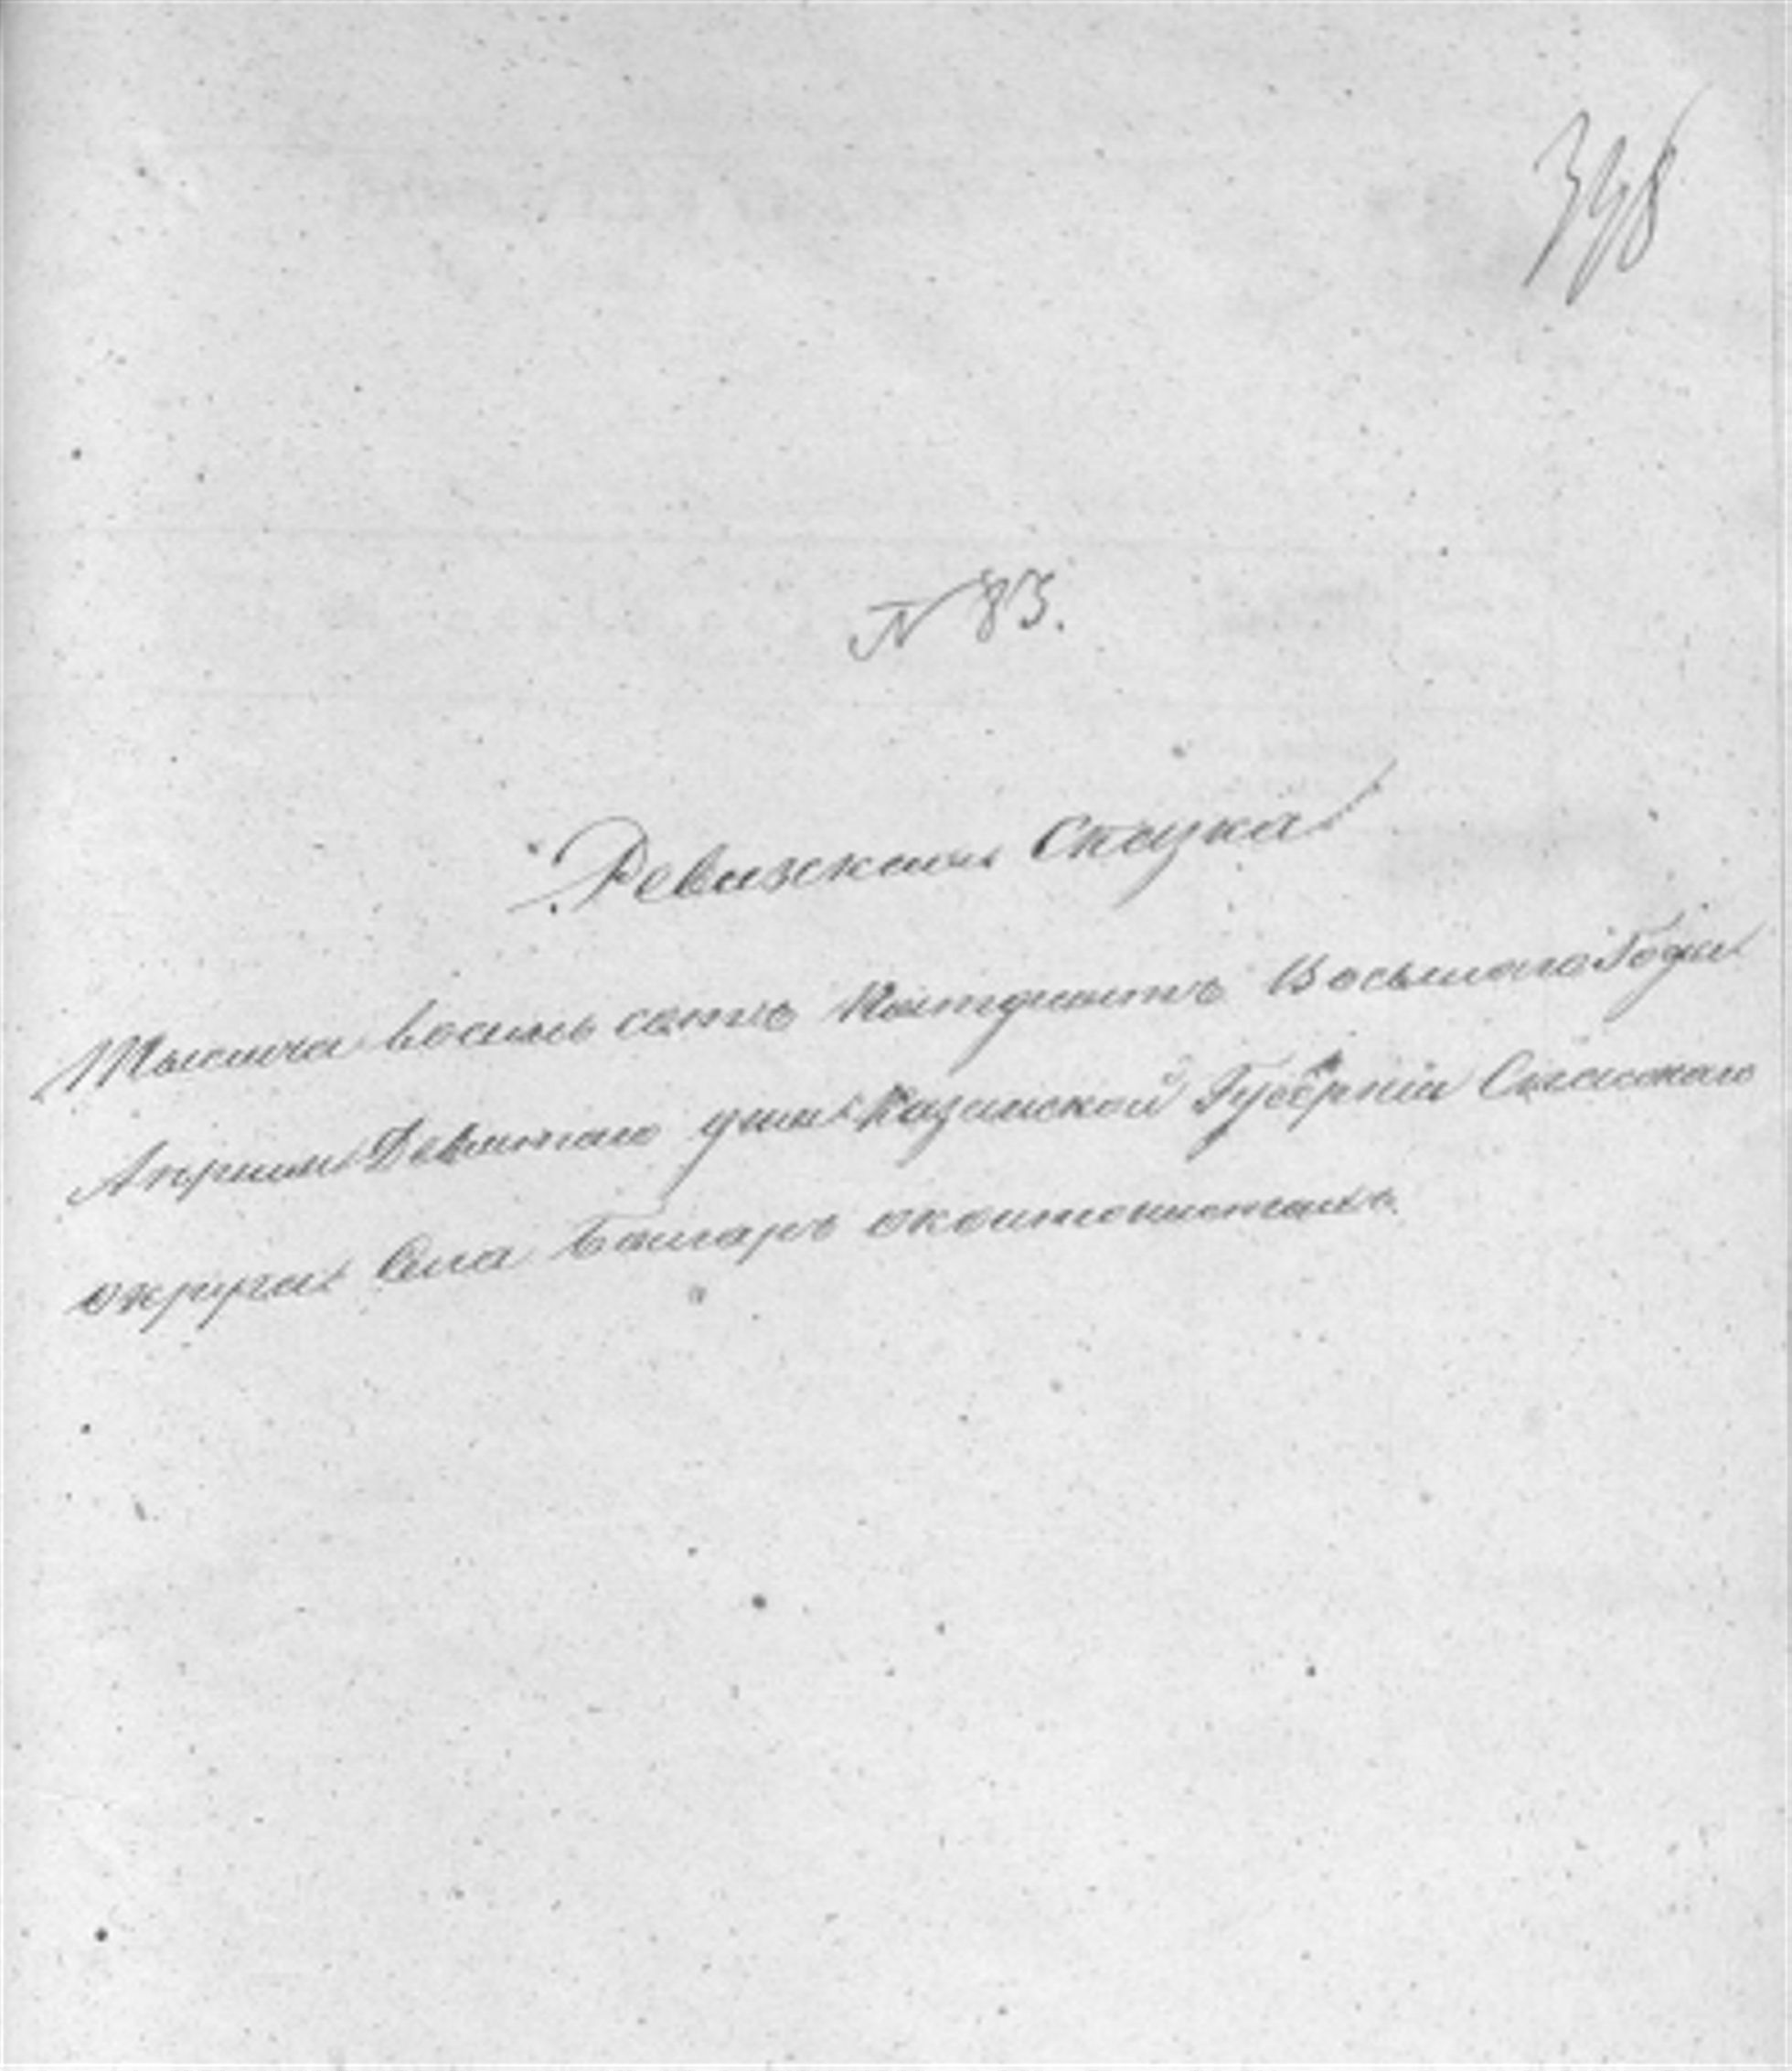 398
N 83.
Ревизская Сказка
Тысяча восемь сотъ Пятдесятъ Восьмаго Года
Апреля Девятаго дня Казанской Губернiи Спасскаго
округа Села Болгаръ